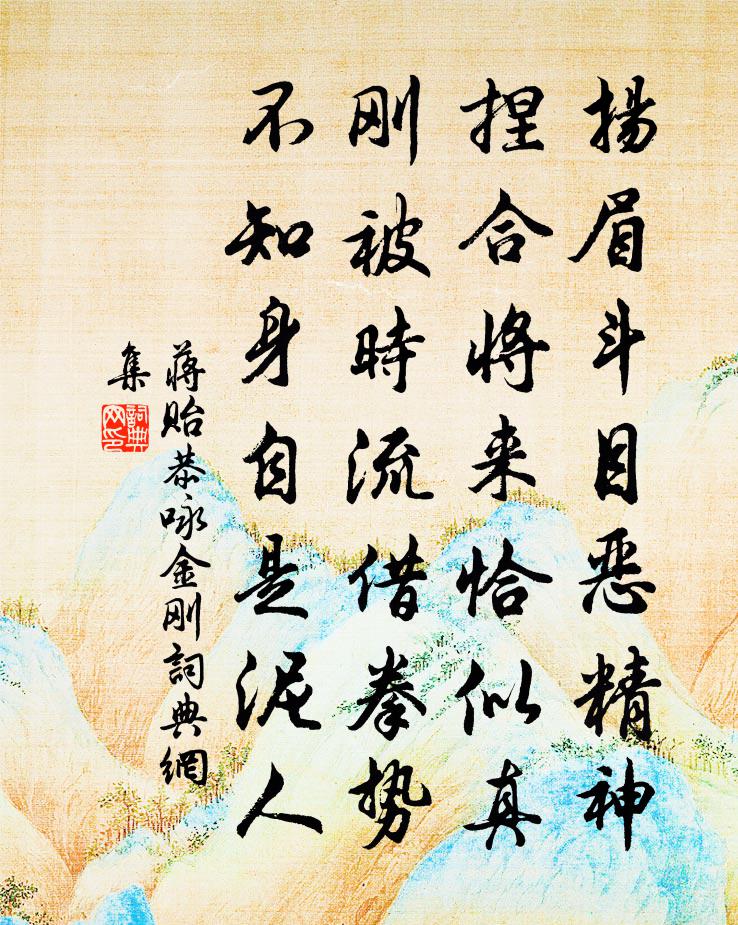 揚眉斗目惡精神
捏合將来恰似真
刚被時流借拳势
不知身自是泥人
蒋贻恭咏金刚詞典網
集
詞典
网印